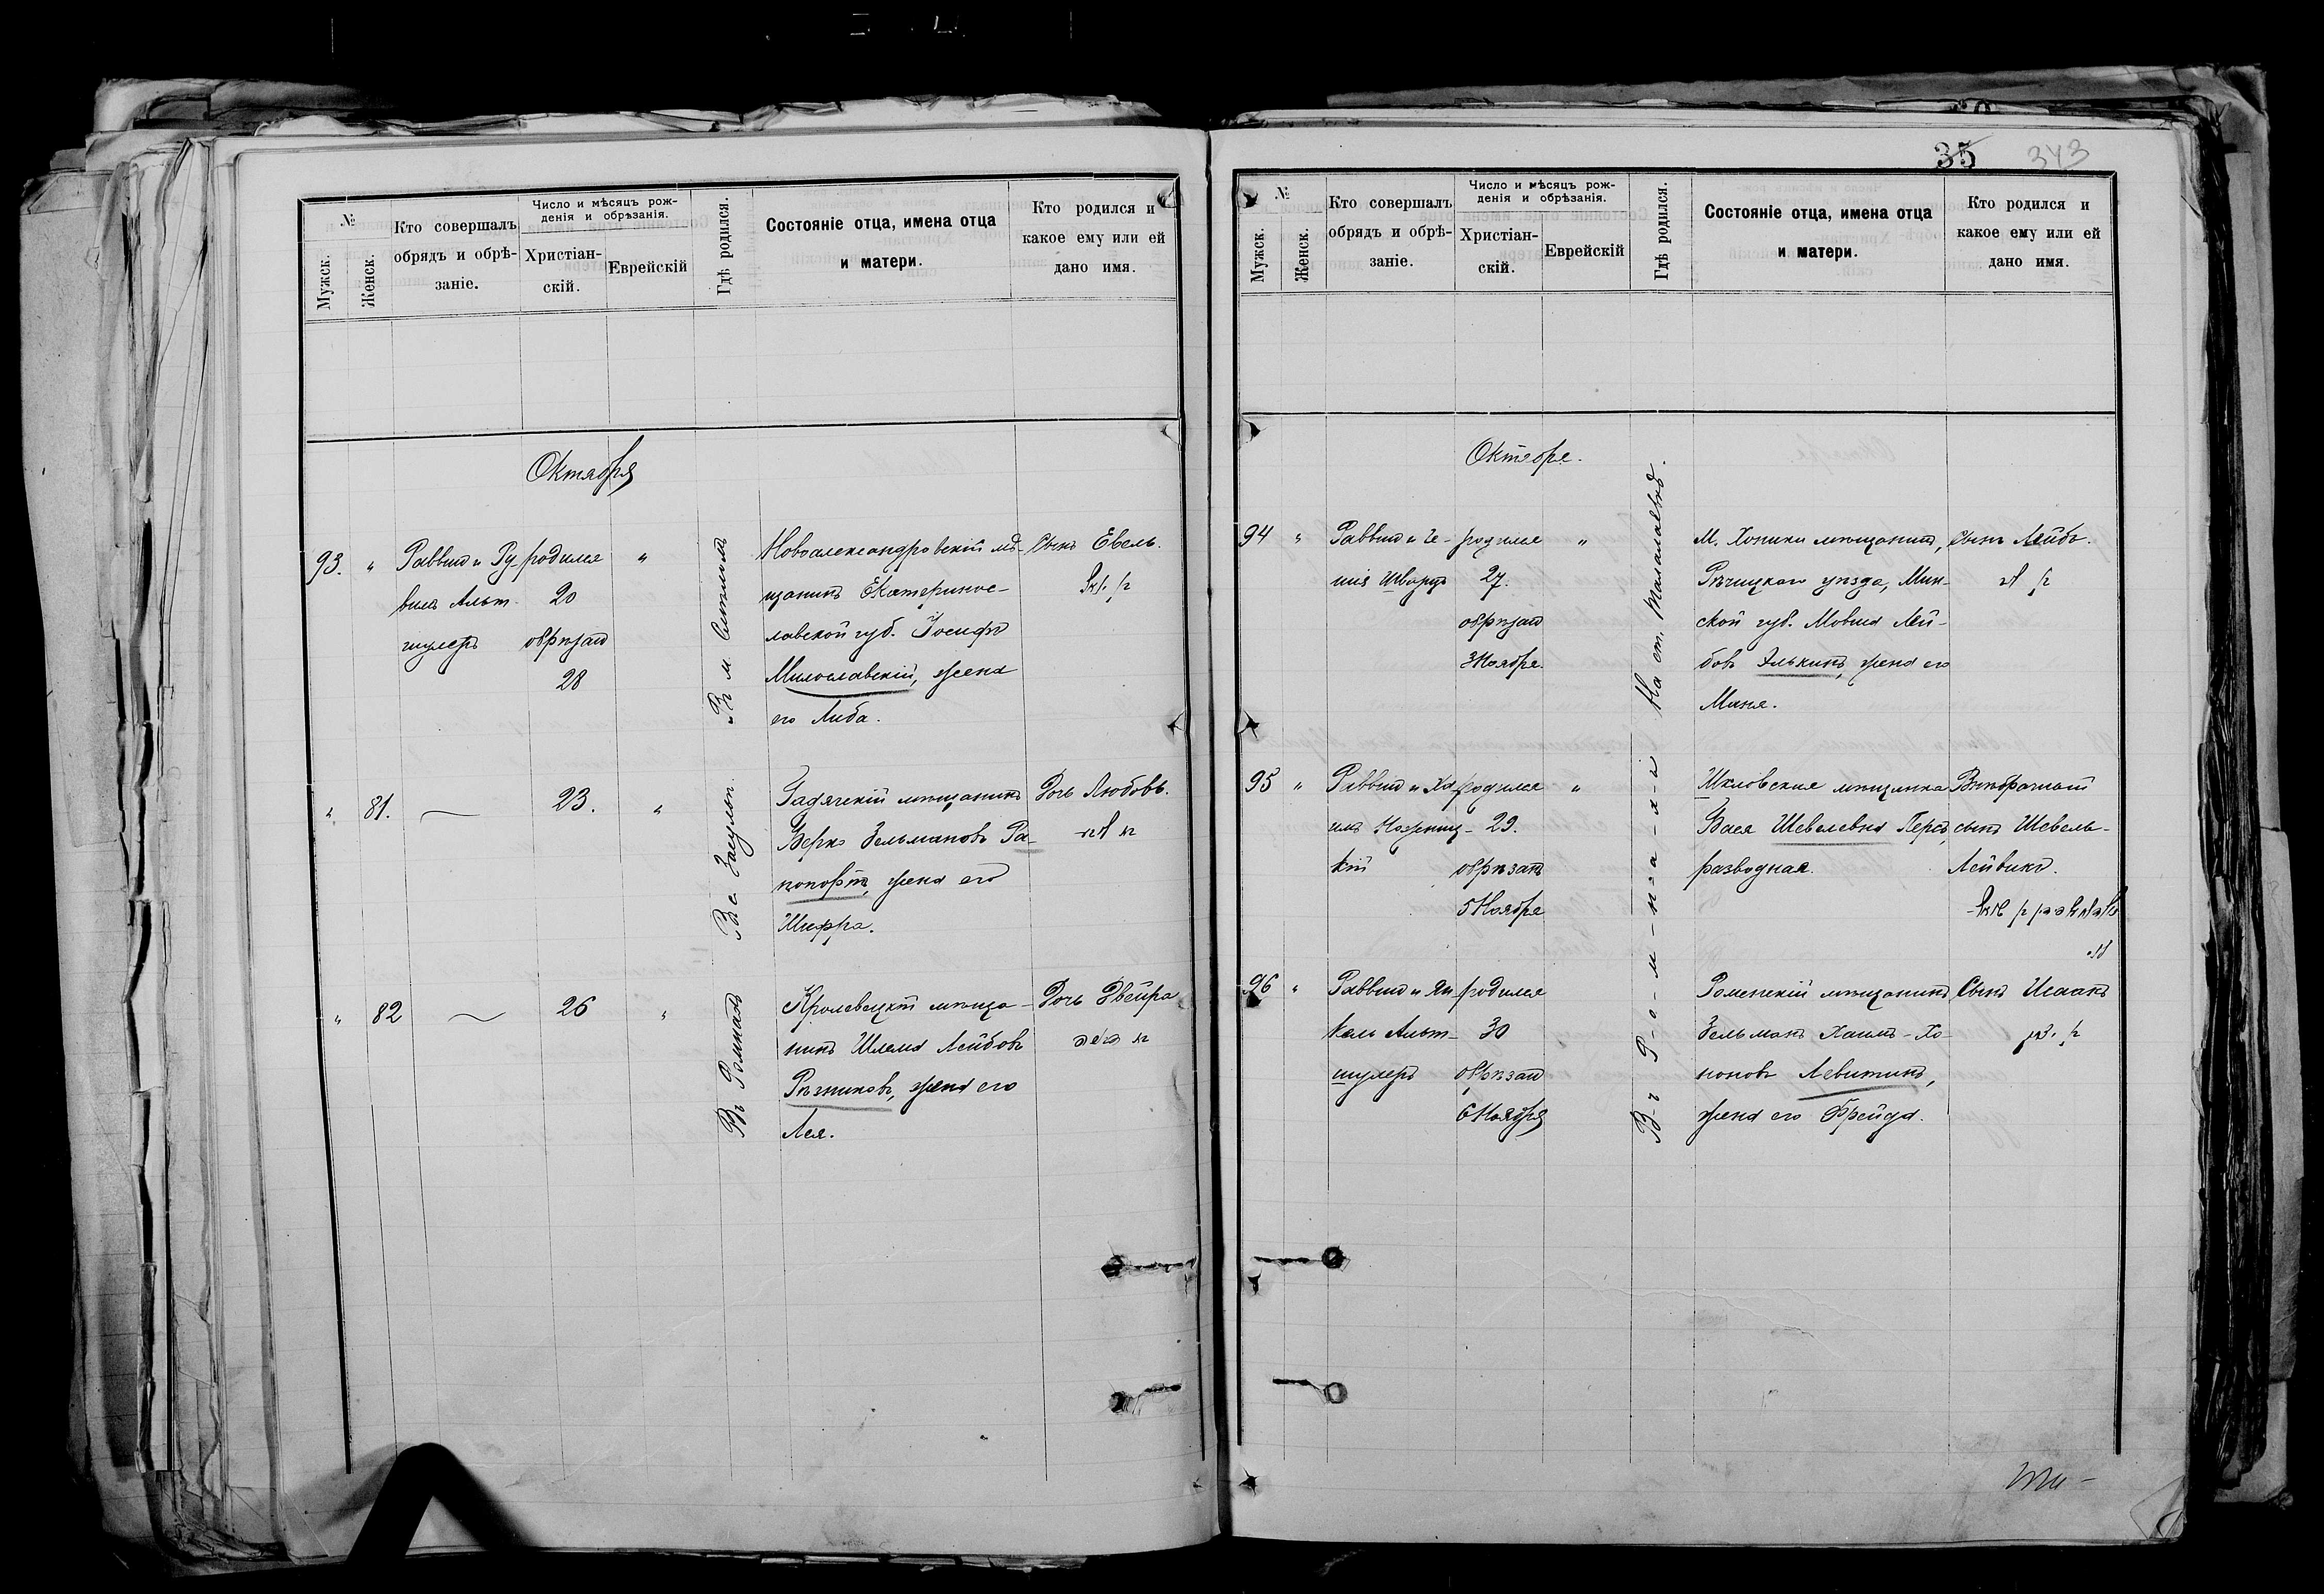 №
Мужск.
Женск.
Кто совершалъ
обрядъ и обрѣ-
заніе.
Число и мѣсяцъ рож-
денія и обрѣзанія.
Христіан-
скій.
Еврейскій
Гдѣ родился.
Состояніе отца, имена отца
и матери.
Кто родился и
какое ему или ей
дано имя.
Октября
93.
"
Раввинъ и Ру-
вимъ Альт-
шулеръ
родился
20
обрѣзанъ
28
"
Въ м.
Новоалександровскій мѣ-
щанинъ Екатеринос-
лавской губ. Іосифъ
Милославскій, жена
его Либа.
Сынъ Евель.
"
81.
23.
"
Въ с. Засульи.
Гадячскій мѣщанинъ
Берко Зельмановъ Ра-
попортъ, жена его
Шифра.
Дочь Любовь.
"
82
26
"
Въ Ромнахъ
Кролевецкій мѣща-
нинъ Шлема Лейбовъ
Рѣзниковъ, жена его
Лея.
Дочь Двейра
35
343
№
Мужск.
Женск.
Кто совершалъ
обрядъ и обрѣ-
заніе.
Число и мѣсяцъ рож-
денія и обрѣзанія.
Христіан-
скій.
Еврейскій
Гдѣ родился.
Состояніе отца, имена отца
и матери.
Кто родился и
какое ему или ей
дано имя.
Октября.
94
"
Раввинъ и Ге-
шія Шварцъ
родился
27.
обрѣзанъ
3 Ноября.
"
На ст. Талалаевкѣ.
М. Хойники мѣщанинъ,
Рѣчицкаго уѣзда, Мин-
ской губ. Мовша Лей-
бовъ Элькинъ, жена его
Маня.
Сынъ Лейбъ.
95
"
Раввинъ и
родился
29.
обрѣзанъ
5 Ноября
"
Въ Ромнахъ
Шкловская мѣщанка
Бася Шевелевна Персъ,
разводная.
Внѣбрачный
сынъ Шевель-
Лейвикъ.
96
"
Раввинъ и Ян-
кель Альт-
шулеръ
родился
30
обрѣзанъ
6 Ноября
Роменскій мѣщанинъ
Зельманъ Хаимъ-Хо-
новъ Левитинъ,
жена его Фрейда.
Сынъ Исаакъ